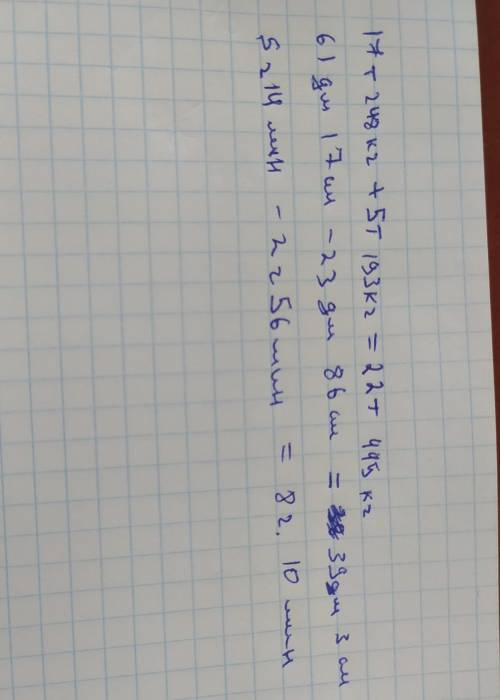 17 т 248 кг + 5т 193 кг = 22 т 445 кг
61 дм 17 см - 23 дм 86 см = 39 дм 3 см
5 ч 14 мин - 2 ч 56 мин = 8 ч. 10 мин